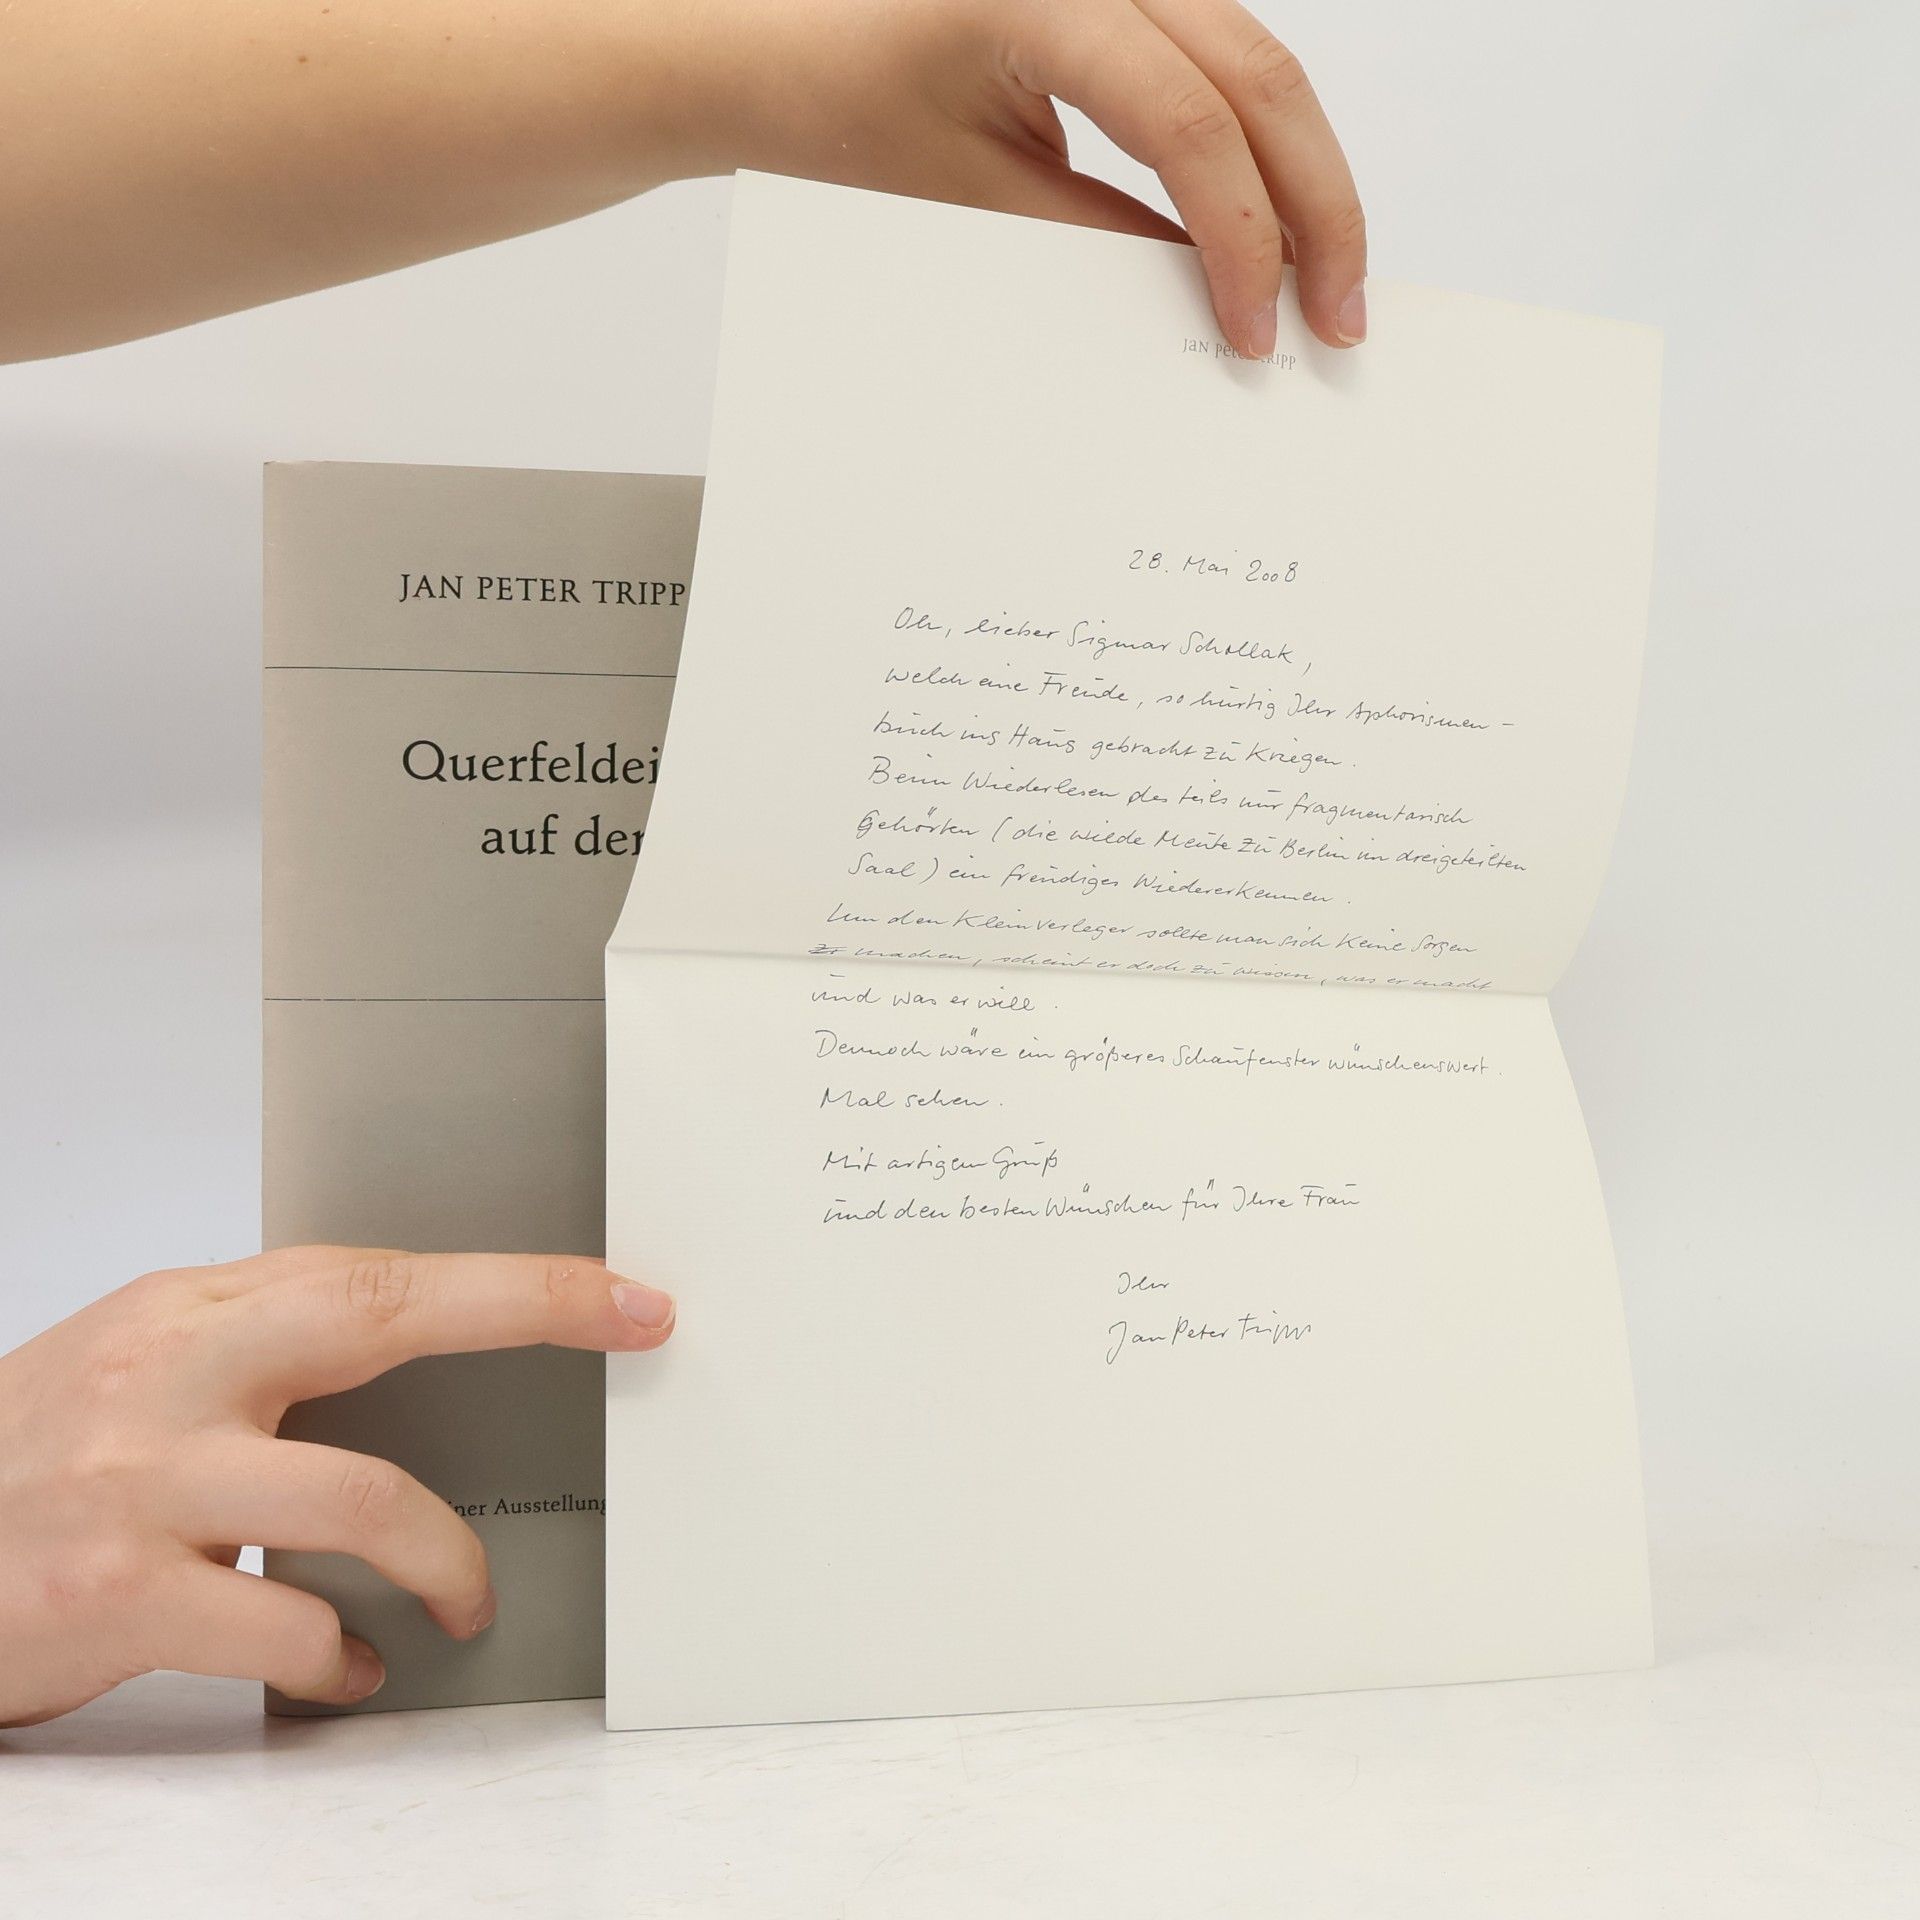 JAN PETER TRIPP
Querfeldei
auf der
iner Ausstellung
JaN pet TRIPP
28. Mai 2008
Oh, lieber Sigmar Schollak,
welch eine Freude, so hurtig Ihr Aphorismen-
buch ins Haus gebracht zu kriegen.
Beim Wiederlesen des teils nur fragmentarisch
Gehörten (die wilde Meute zu Berlin im dreigeteilten
Saal) ein freudiges Wiedererkennen.
Um den Kleinverleger sollte man sich keine Sorgen
zu machen, scheint er doch zu wissen, was er macht
und was er will.
Dennoch wäre ein größeres Schaufenster wünschenswert.
Mal sehen.
Mit artigem Gruß
und den besten Wünschen für Ihre Frau
Ihr
Jan Peter Tripp